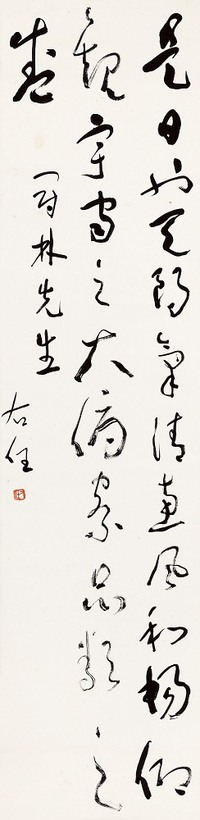 是日也天朗氣清惠風和暢仰
觀宇宙之大俯察品類之
盛
冠林先生
右任